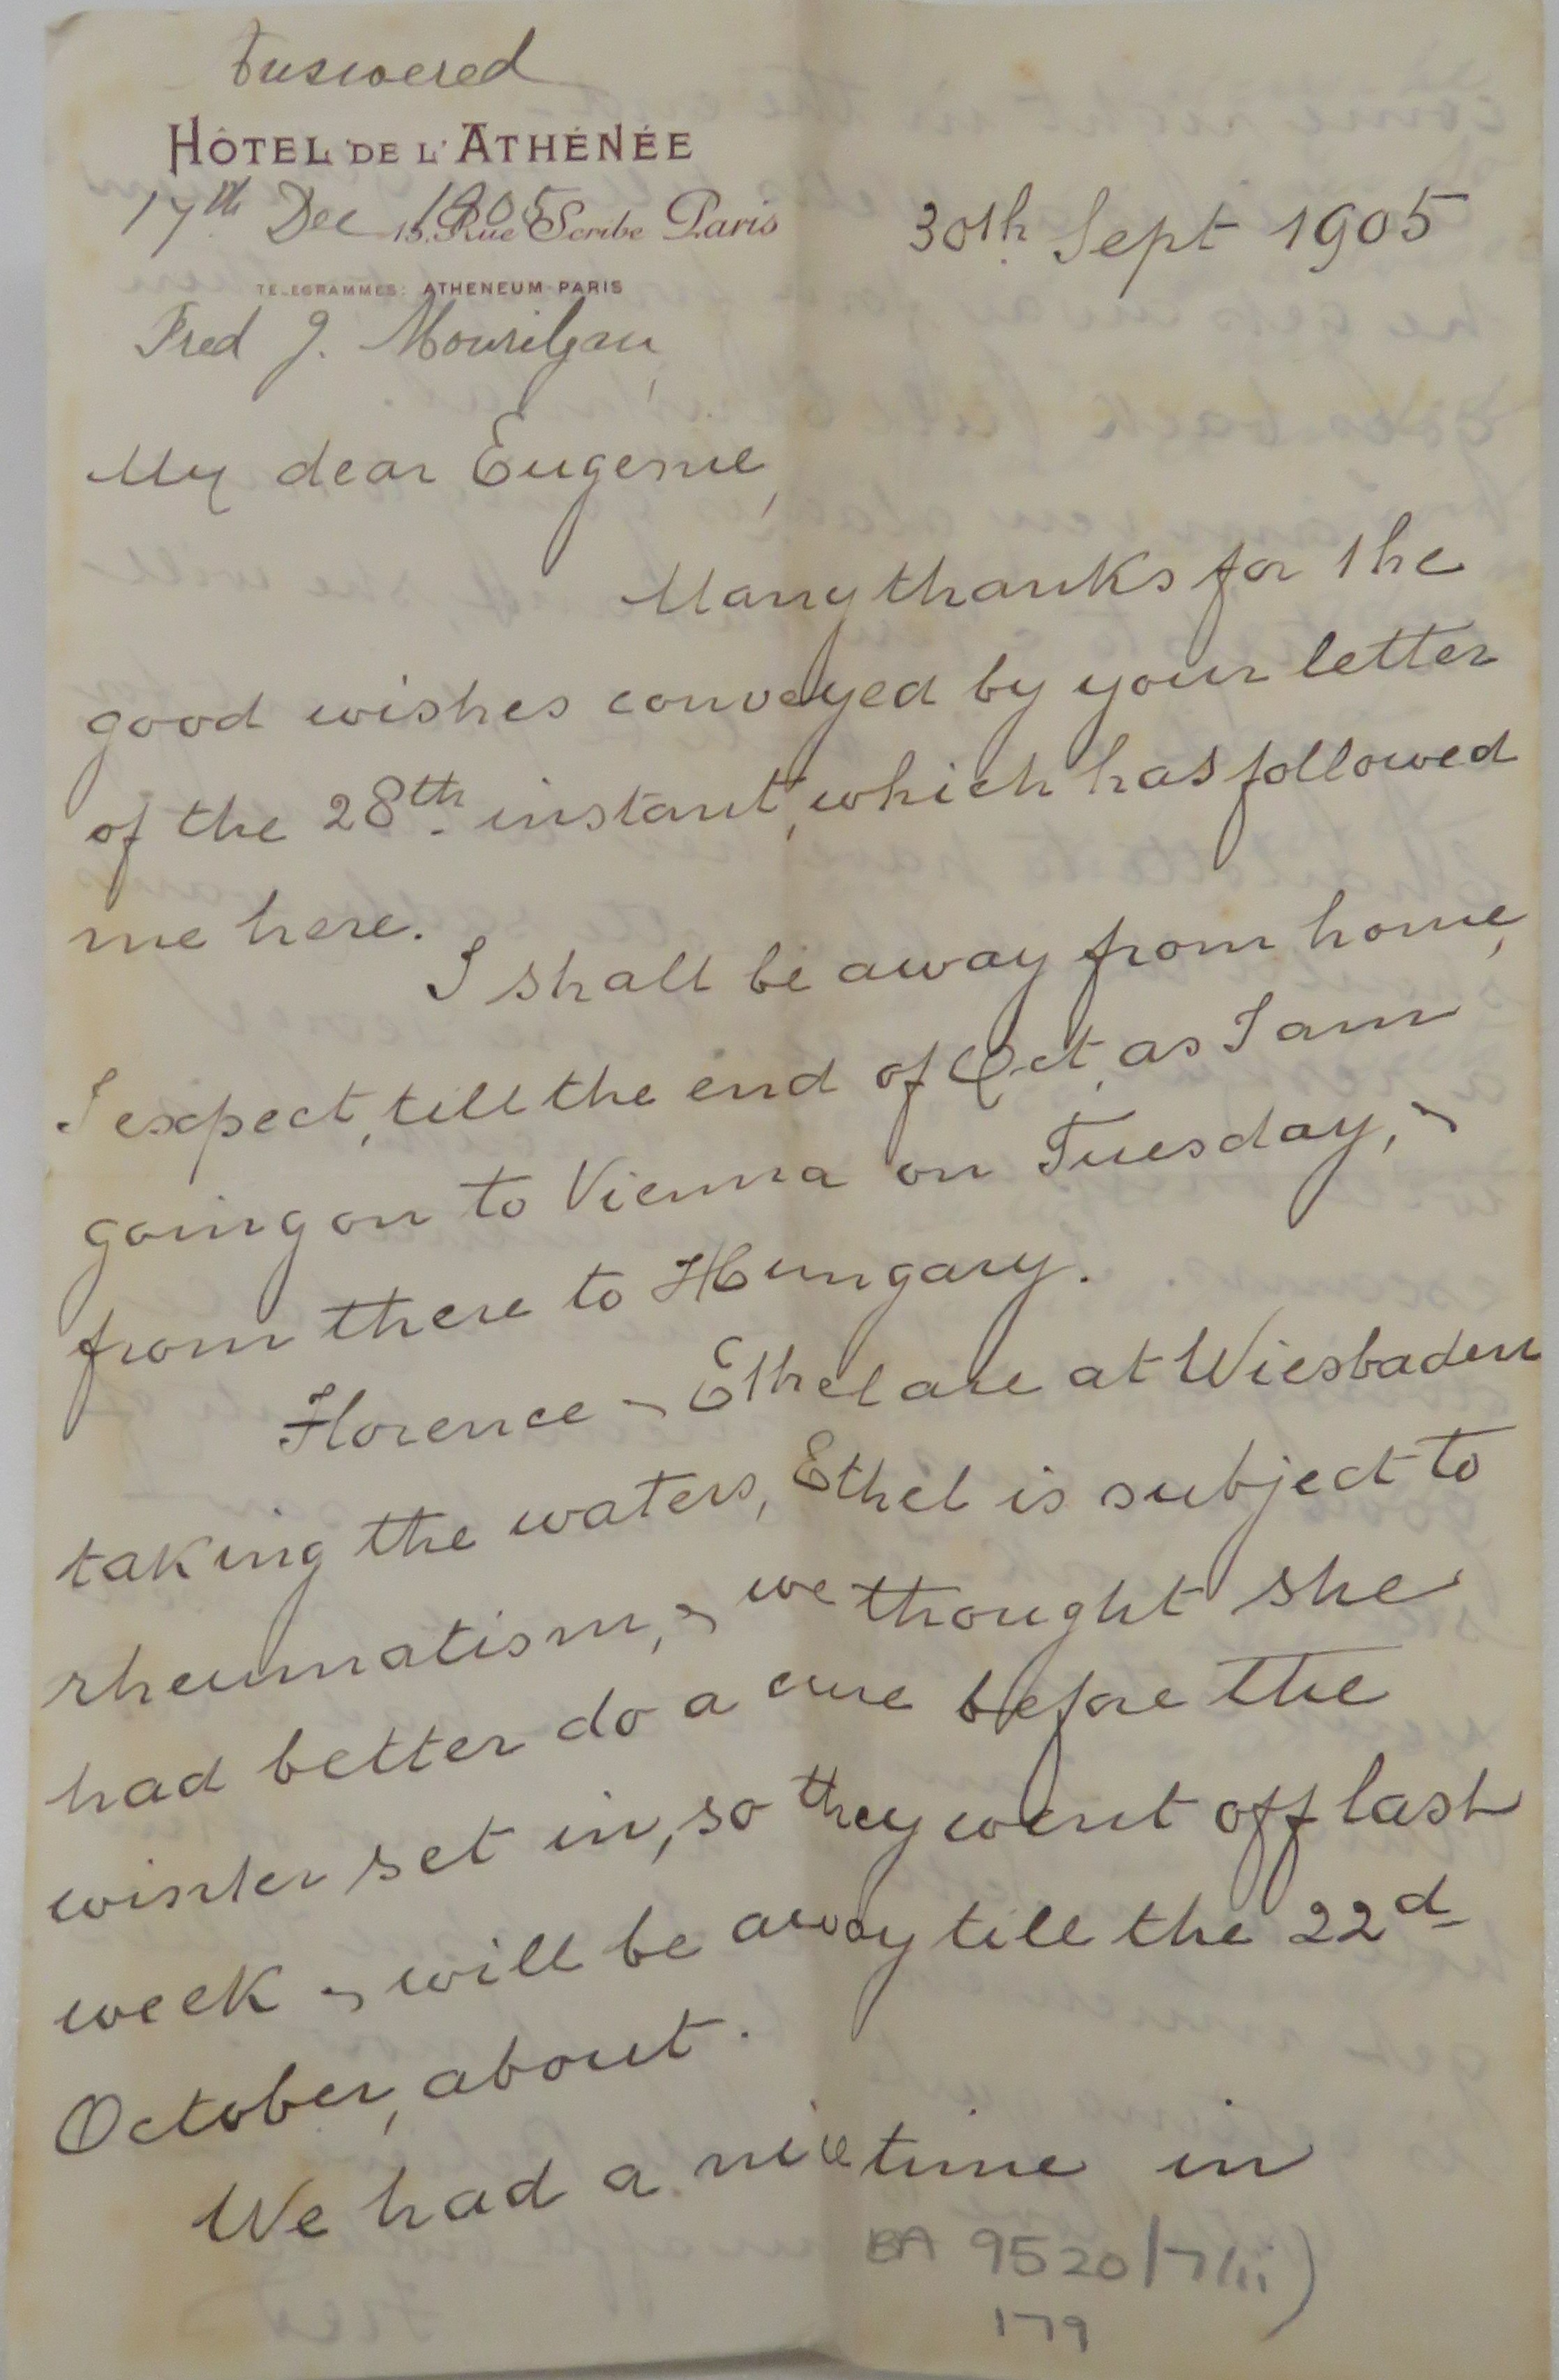 Answered
HÔTEL DE L'ATHÉNÉE
17th Dec 1905
15. Rue Scribe Paris
30th Sept 1905
TÉLÉGRAMMES: ATHENEUM-PARIS
Fred J. Mourilyan
My dear Eugenie,
Many thanks for the
good wishes conveyed by your letter
of the 28th instant, which has followed
me here.
I shall be away from home,
I expect, till the end of Oct, as I am
going on to Vienna on Tuesday, &
from there to Hungary.
Florence & Ethel are at Wiesbaden
taking the waters, Ethel is subject to
rheumatism, & we thought she
had better do a cure before the
winter set in, so they went off last
week & will be away till the 22d
October, about.
We had a nice time in
BA 9520/7/ii)
179